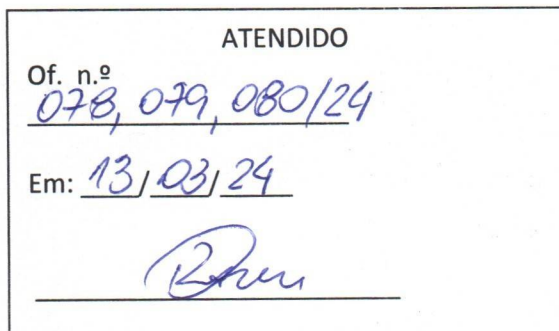 ATENDIDO
Of. n.º
078, 079, 080/24
Em: 13/03/24